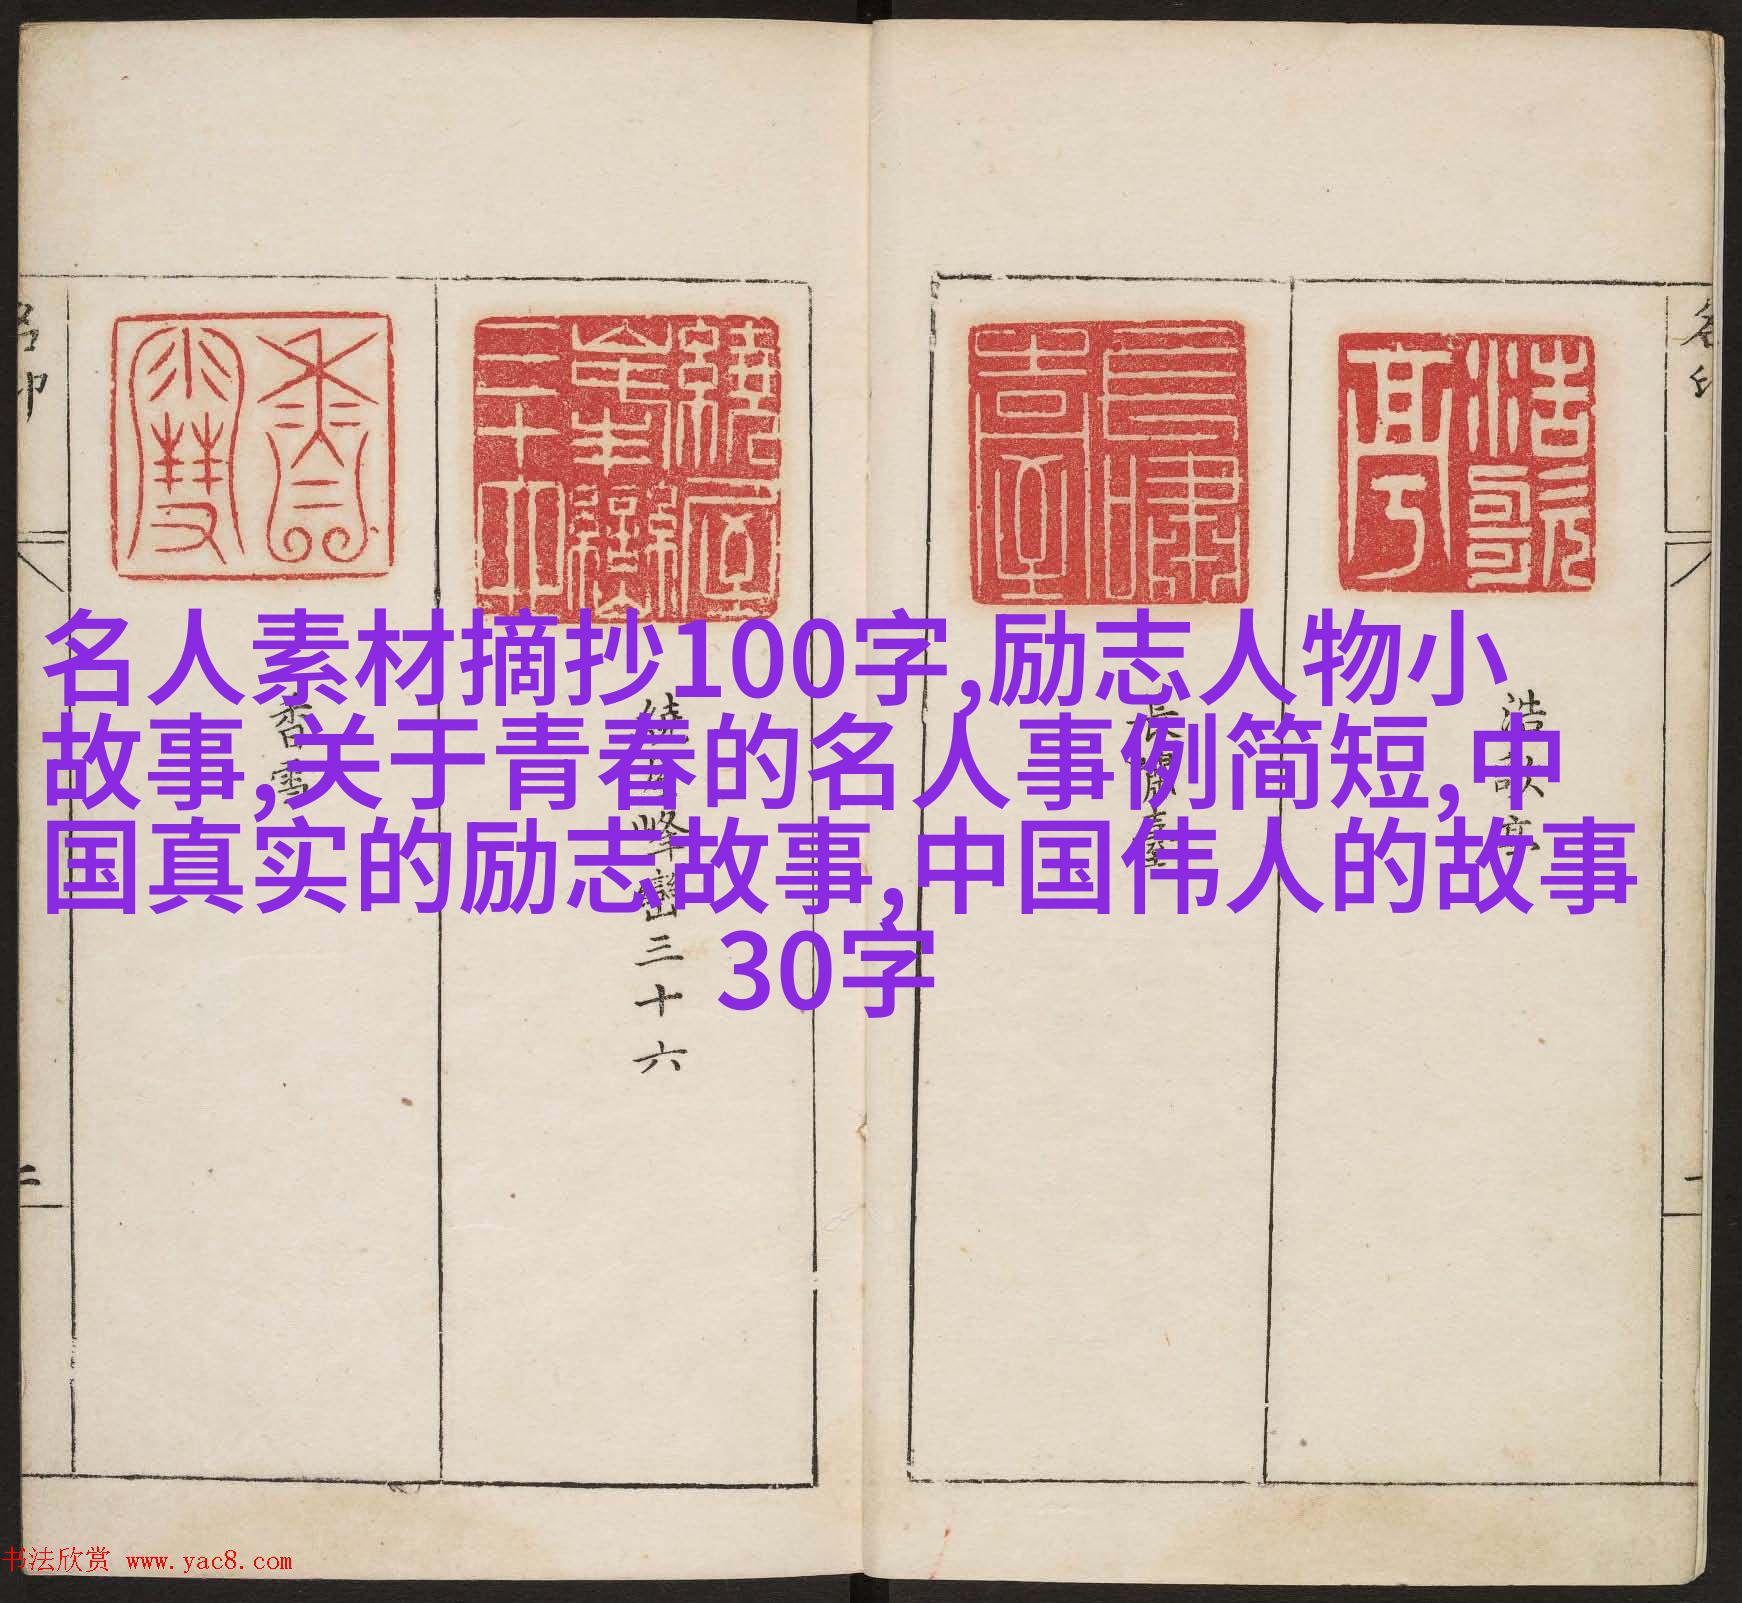 名人素材摘抄100字,励志人物小
故事,关于青春的名人事例简短,中
国真实的励志故事,中国伟人的故事
30字
浩歌亭
長嘯臺
繞屋峰巒三十六
香雪
书法欣赏 www.yac8.com